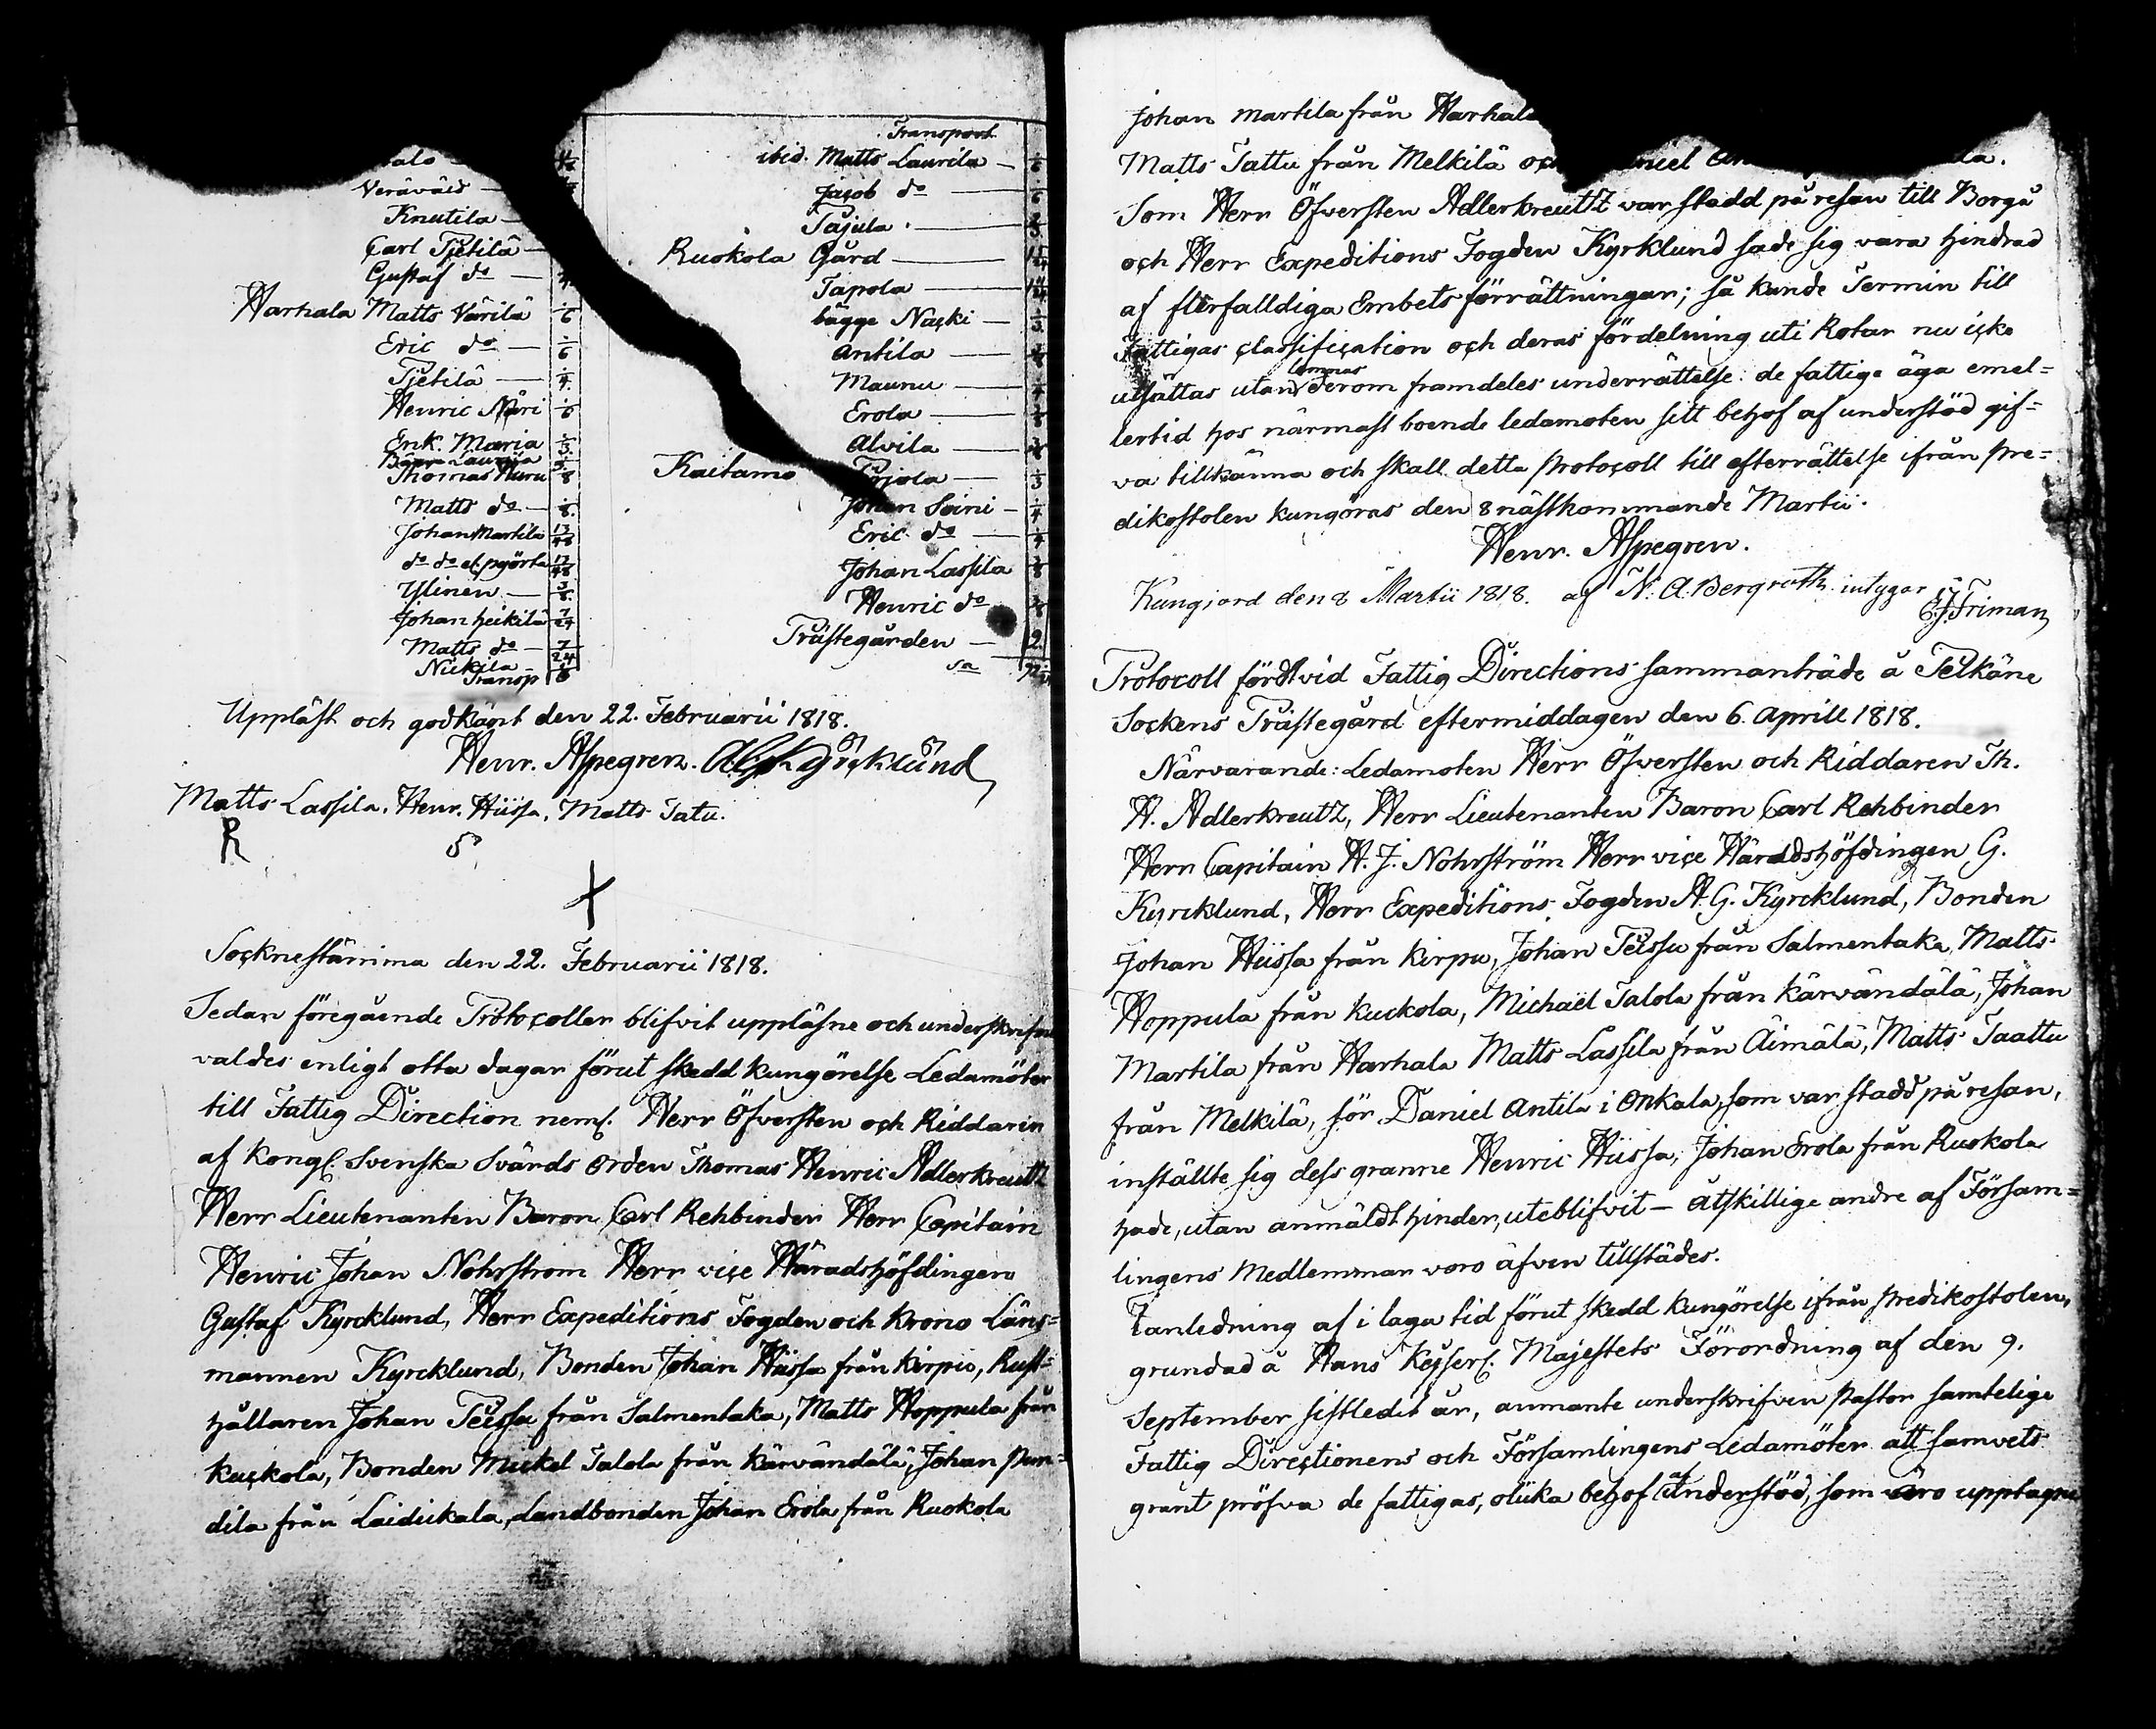 Veräväis —
Knutila —
Carl Pjetilä —
Gustaf do —
Harhala Matts Värilä 1/6
Eric do — 1/6
Pjetilä — 1/4
Henric Näri 1/6
Enk. Maria 1/3
Thomas Huru 1/8
Matts do — 1/8
Johan Martila 13/48
do do 13/48
Ylinen — 3/8
Johan Heikilä 7/24
Matts do — 7/24
Nickila — 1/6
Transp
Transport
ibid. Matts Laurila — 1/6
Jacob do — 1/6
Pajula —
Ruokola Gård —
Tapola —
bägge Nacki — 1/3
Antila —
Maunu — 1/4
Erola —
Alvila —
Kaitamo Pojola — 1/3
Johan Soini — 1/4
Eric do — 1/4
Johan Lassila 3/8
Henric do 3/8
Prästegården — 2
Sa
Uppläst och godkänt den 22. Februarii 1818.
Henr. Aspegren. Kyrcklund
Matts Lassila. Henr. Hiissa. Matts Tatu.
Socknestämma den 22. Februarii 1818.
Sedan föregående Protocoller blifvit uppläsne och underskrifne
valdes enligt otta dagar förut skedd kungörelse Ledamöter
till Fattig Direction neml. Herr Öfversten och Riddarin
af Kongl. Svenska Svärds Orden Thomas Henric Adlerkreutz
Herr Lieutenanten Baron Carl Rehbinder Herr Capitain
Henric Johan Nohrstrom Herr vice Häradshöfdingen
Gustaf Kyrcklund, Herr Expeditions Fogden och Krono Läns=
mannen Kyrcklund, Bonden Johan Hiissa från Kirpu, Rust=
hållaren Johan Peussu från Salmentaka, Matts Hoppula från
Kuckola, Bonden Mickel Talola från Kärvändälä, Johan Pun=
dila från Laidickala, Landbonden Johan Erola från Ruokola
Johan Martila från Harhala
Matts Tattu från Melkilä och
Som Herr Öfversten Adlerkreutz var stadd på resan till Borgå
och Herr Expeditions Fogden Kyrklund sade sig vara hindrad
af flerfalldiga Embetsförrättningar; så kunde Termin till
Fattigas classification och deras fördelning uti Rotar nu icke
utsättas utan lemnas derom framdeles underrättelse: de fattige äga emel=
lertid hos närmast boende ledamoten sitt behof af understöd gif=
va tillkänna och skall detta Protocoll till efterrättelse ifrån Pre=
dikostolen kungöras den 8 nästkommande Martii.
Henr. Aspegren.
Kungjord den 8 Martii 1818. af N. A. Bergroth intygar
Friman
Protocoll fördt vid Fattig Directions sammanträde å Pelkäne
Sockens Prästegård eftermiddagen den 6. Aprill 1818.
Närvarande: Ledamoten Herr Öfversten och Riddaren Th.
H. Adlerkreutz, Herr Lieutenanten Baron Carl Rehbinder
Herr Capitain H. J. Nohrström Herr vice Häradshöfdingen G.
Kyrcklund, Herr Expeditions Fogden A. G. Kyrcklund, Bonden
Johan Hiissa från Kirpu, Johan Peussu från Salmentaka, Matts
Hoppula från Kuckola, Michaël Talola från Kärvändälä, Johan
Martila från Harhala Matts Lassila från Äimälä, Matts Taattu
från Melkilä, för Daniel Antila i Onkala, som var stadd på resan,
inställte sig dess granne Henric Hiissa, Johan Erola från Ruokola
hade, utan anmäldt hinder, uteblifvit — Åtskillige andre af Försam=
lingens Medlemmar voro äfven tillstädes.
I anledning af i laga tid förut skedd kungörelse ifrån Predikostolen,
grundad å Hans Kejserl. Majestets Förordning af den 9.
September sistledit år, anmante underskrifven Pastor samtelige
Fattig Directionens och Församlingens Ledamöter att samvets
grant pröfva de fattigas, olika behof af understöd, som voro upptagne